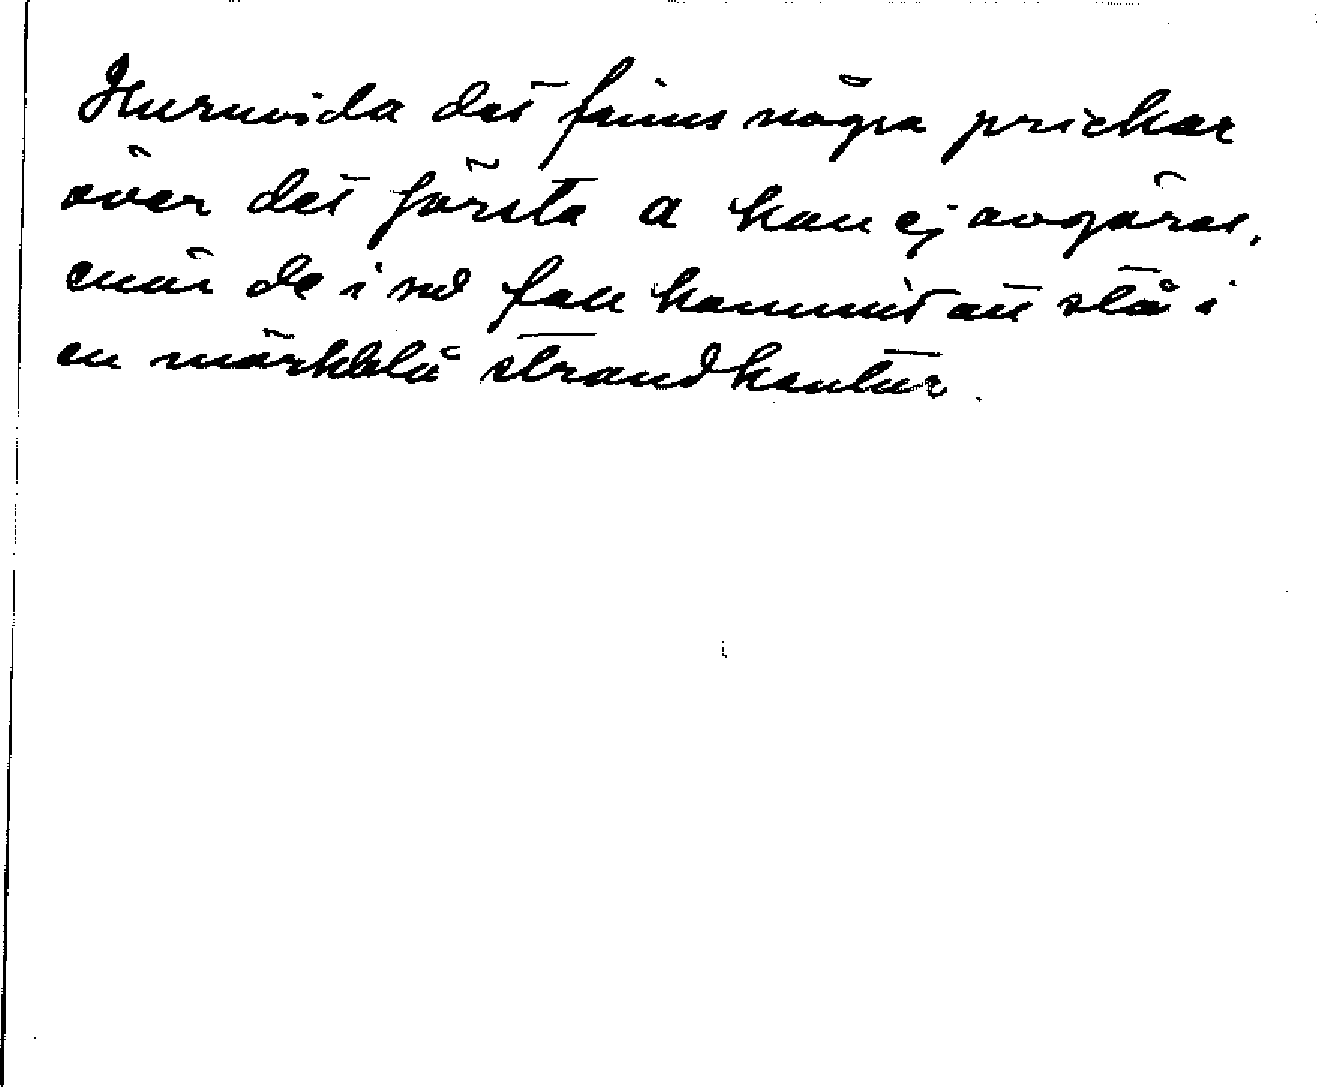 Huruvida det finns några prickar
över det första a kan ej avgöras,
enär de i så fall kommit att stå i
en mörkblå strandkontur.